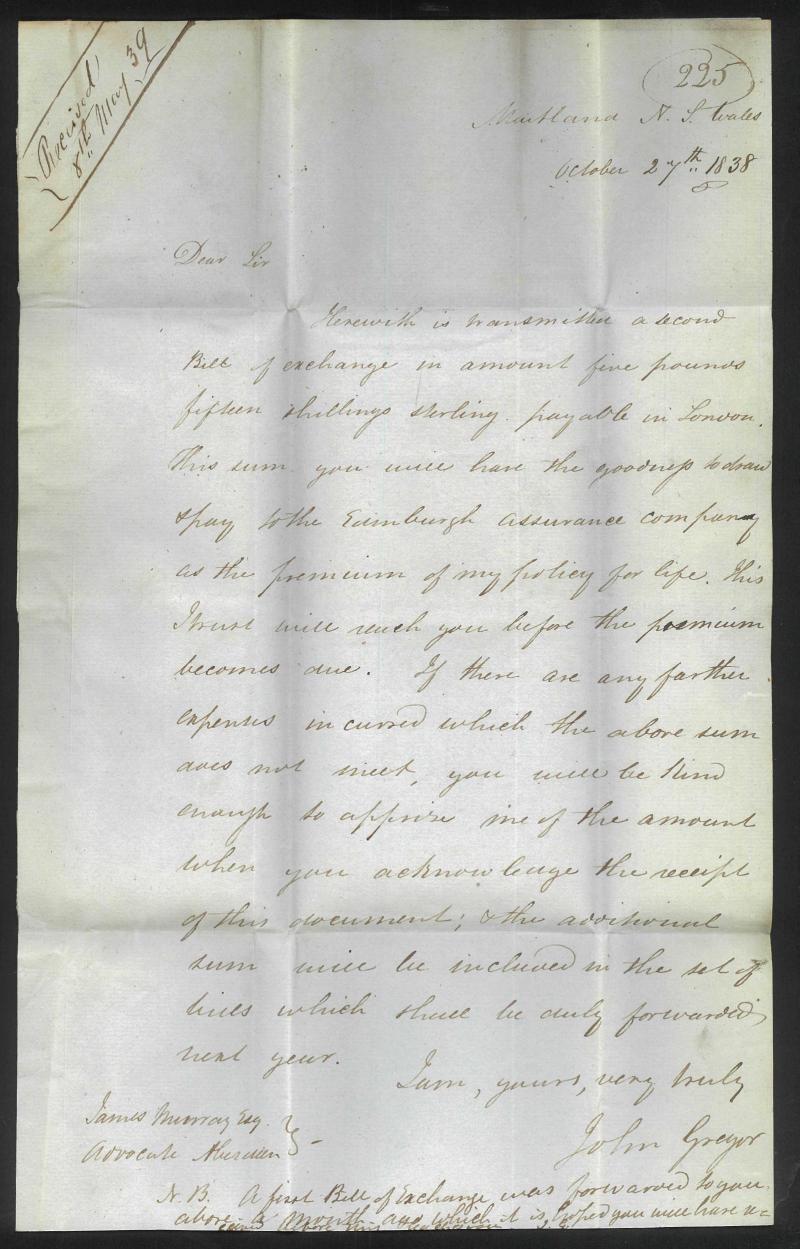 Received
8th May 39
225
Maitland N. S. Wales
October 27th 1838
Dear Sir
Herewith is transmitted a second
Bill of exchange in amount five pounds
fifteen shillings sterling payable in London.
This sum you will have the goodness to draw
& pay to the Edinburgh assurance company
as the premium of my policy for life. This
I trust will reach you before the premium
becomes due. If there are any farther
expenses incurred which the above sum
does not meet, you will be kind
enough to apprise me of the amount
when you acknowledge the receipt
of this document; & the additional
sum will be included in the set of
bills which shall be duly forwarded
next year.
I am, yours, very truly
John Gregor
James Murray Esq.
Advocate Aberdeen
N. B. A first Bill of Exchange was forwarded to you
above a month ago which it is hoped you will have re=